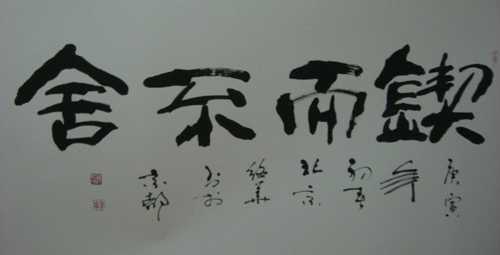 鍥而不舍
庚寅
年
初春
北京
京都